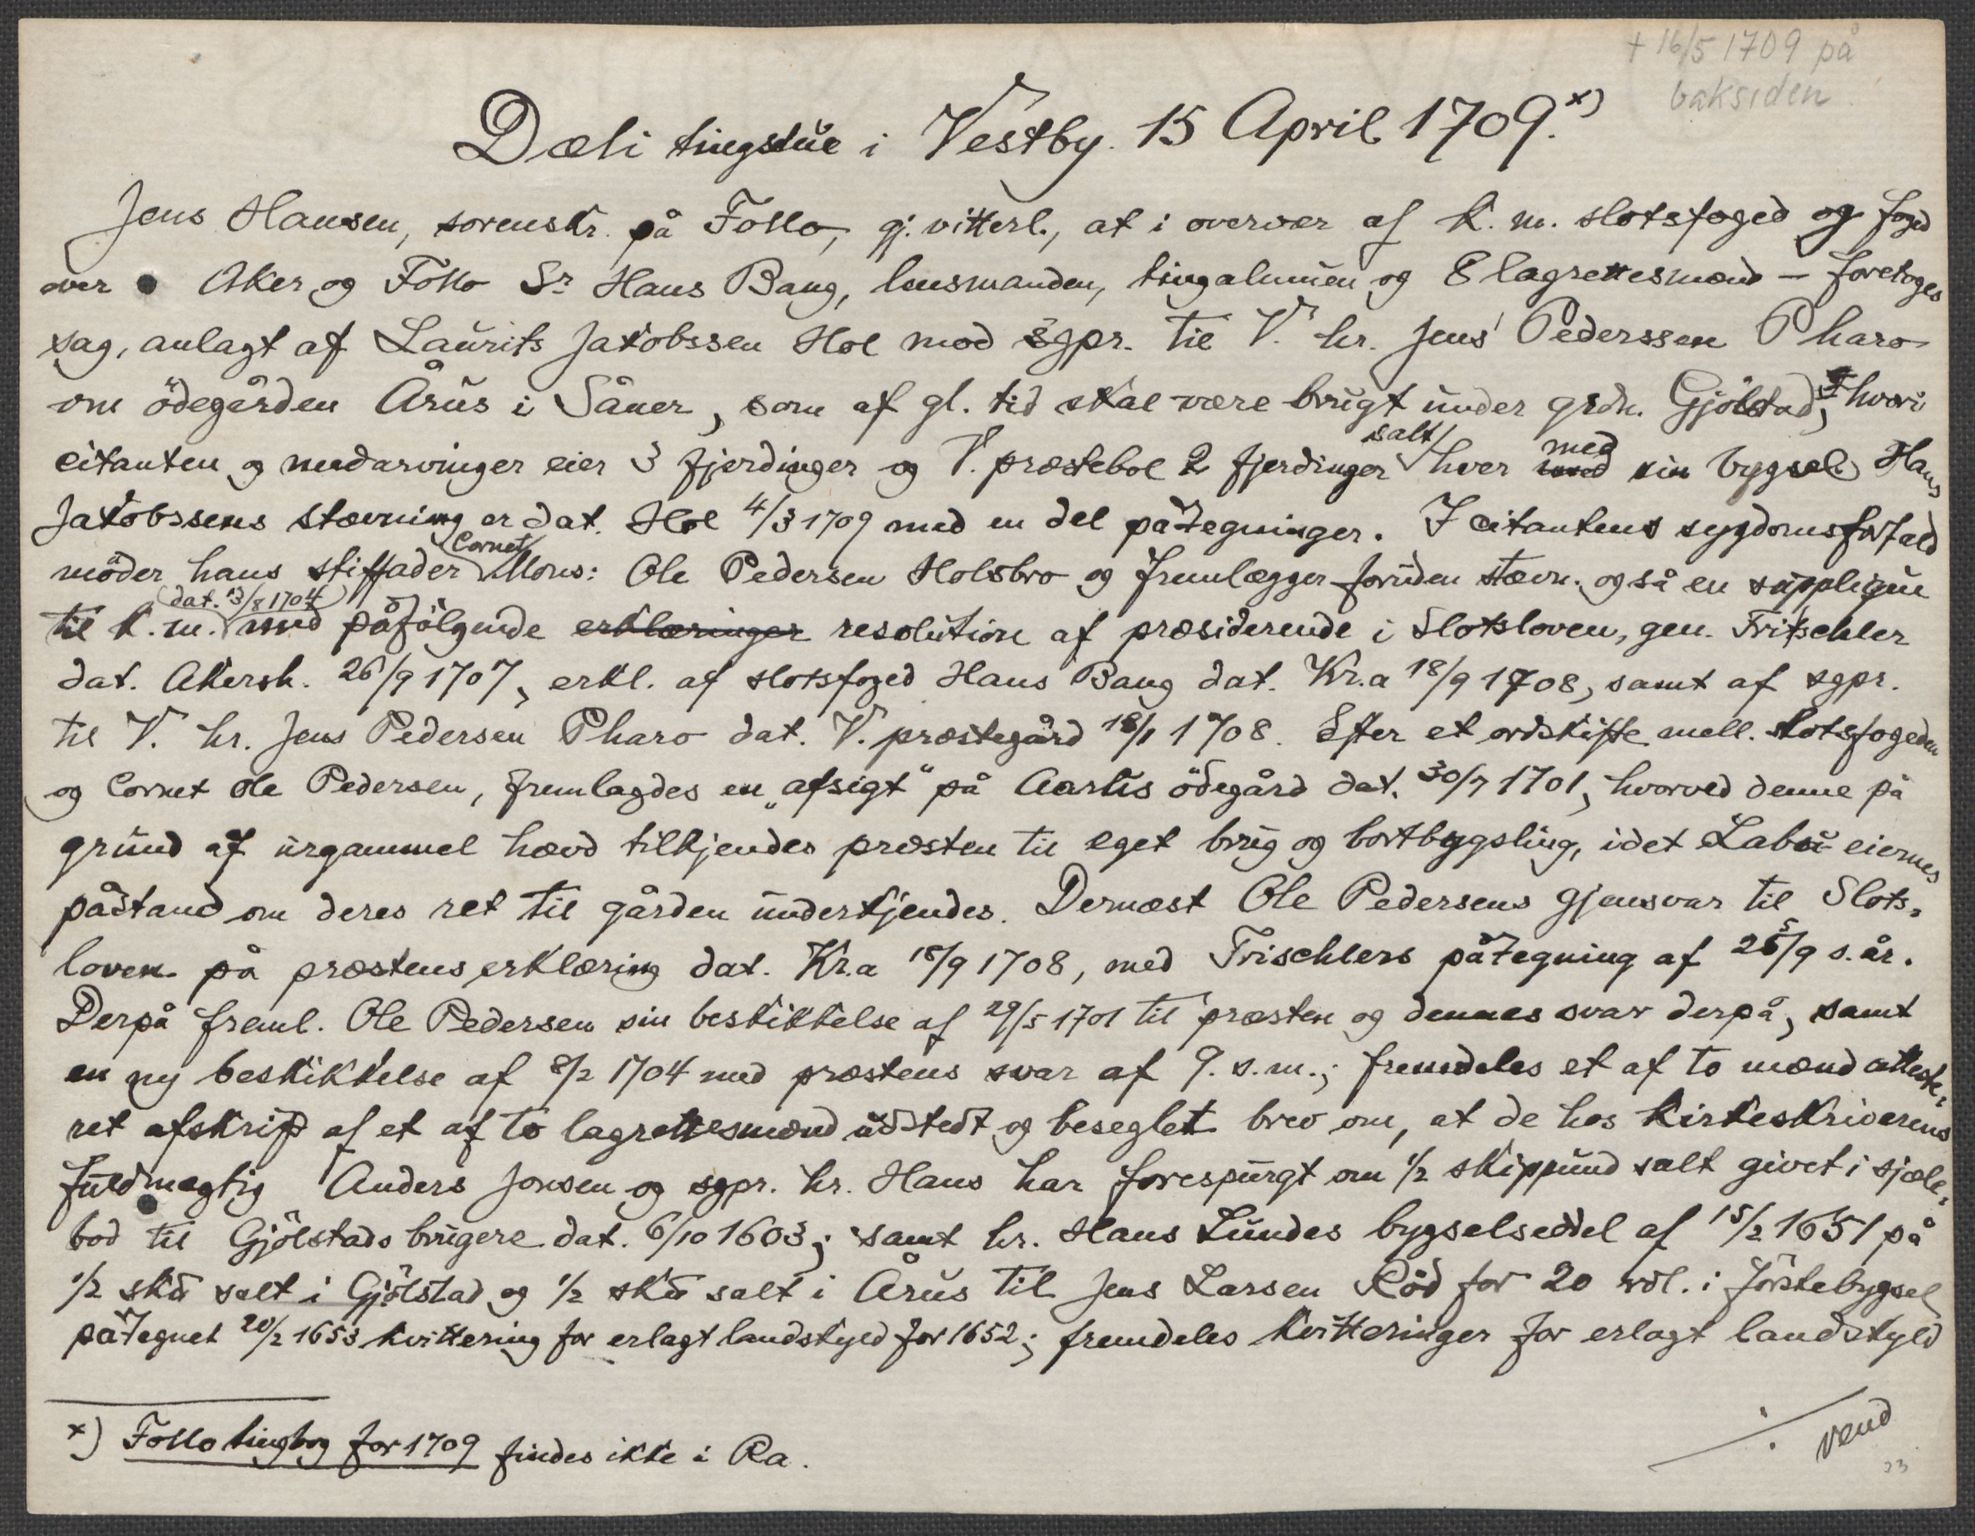 + 16/5 1709 på
baksiden
Dæli tingstue i Vestby. 15 April 1709.x)
Jens Hansen, sorenskr. på Follo, gj. vitterl., at i overvær af k. m. slotsfoged og foged
over Aker og Follo Sr. Hans Bang, lensmanden, tingalmuen og 8 lagrettesmænd – foretoges
sag, anlagt af Laurits Jakobssen Hol mod sgpr. til V. hr. Jens Pederssen Pharo
om ödegården Årus i Såner, som af gl. tid skal være brugt under grdn. Gjölstad, hvori
citanten og medarvinger eier 3 fjerdinger og V. præstebol 2 fjerdinger salt hver med sin bygsel. Hans
Jakobssens stævning er dat. Hol 4/3 1709 med en del påtegninger. I citantens sygdomsforfald
möder hans stiffader Cornet Mons: Ole Pedersen Holsbro og fremlægger foruden stævn. også en supplique
til k. m. dat. 13/8 1704 med påfölgende erklæringer resolution af præsiderende i Slotsloven, gen. Tritschler
dat. Akersh. 26/9 1707, erkl. af slotsfoged Hans Bang dat. Kr.a 18/9 1708, samt af sgpr.
til V. hr. Jens Pedersen Pharo dat. V. præstegård 18/1 1708. Efter et ordskifte mell. slotsfogeden
og Cornet Ole Pedersen, fremlagdes en "afsigt" på Aarus ödegård dat. 30/7 1701, hvorved denne på
grund af urgammel hævd tilkjendes præsten til eget brug og bortbygsling, idet Labu eiernes
påstand om deres ret til gården underkjendes. Dernæst Ole Pedersens gjensvar til Slots-
loven på præstens erklæring dat. Kr.a 18/9 1708, med Trischlers påtegning af 25/9 s. år.
Derpå freml. Ole Pedersen sin beskikkelse af 29/5 1701 til præsten og dennes svar derpå, samt
en ny beskikkelse af 8/2 1704 med præstens svar af 9. s.m.; fremdeles et af to mænd atteste-
ret afskrift af et af to lagrettesmænd udstedt og beseglet brev om, at de hos kirkeskriverens
fuldmægtig Anders Jonsen og sgpr. hr. Hans har forespurgt om 1/2 skippund salt givet i sjæle-
bod til Gjölstads brugere dat. 6/10 1603; samt hr. Hans Lundes bygselseddel af 15/2 1651 på
1/2 skd salt i Gjölstad og 1/2 skd salt i Årus til Jens Larsen Röd for 20 rdl. i förstebygsel
påtegnet 20/2 1653 kvittering for erlagt landskyld for 1652; fremdeles kvitteringer for erlagt landskyld
x) Follo tingbog for 1709 findes ikke i Ra.
vend
23